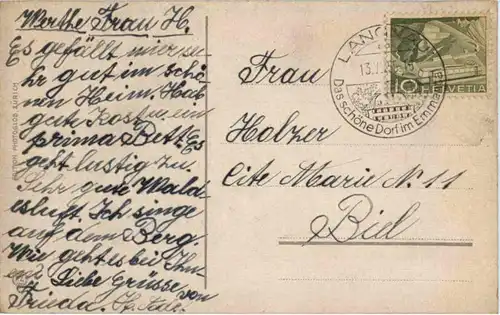 Werthe Frau H.
Es gefällt mir se-
hr gut im schö-
nen Heim. Hab
gute Kost u. ein
prima Bett. Es
geht lustig zu.
Sehr gute Wald-
esluft. Ich singe
auf dem Berg.
Wie geht es bei Ihn-
en? Liebe Grüsse von
Frieda.
Frau
Holzer
Cite Marie No. 11
Biel
LANGNAU
Das schöne Dorf im Emmental
10 HELVETIA